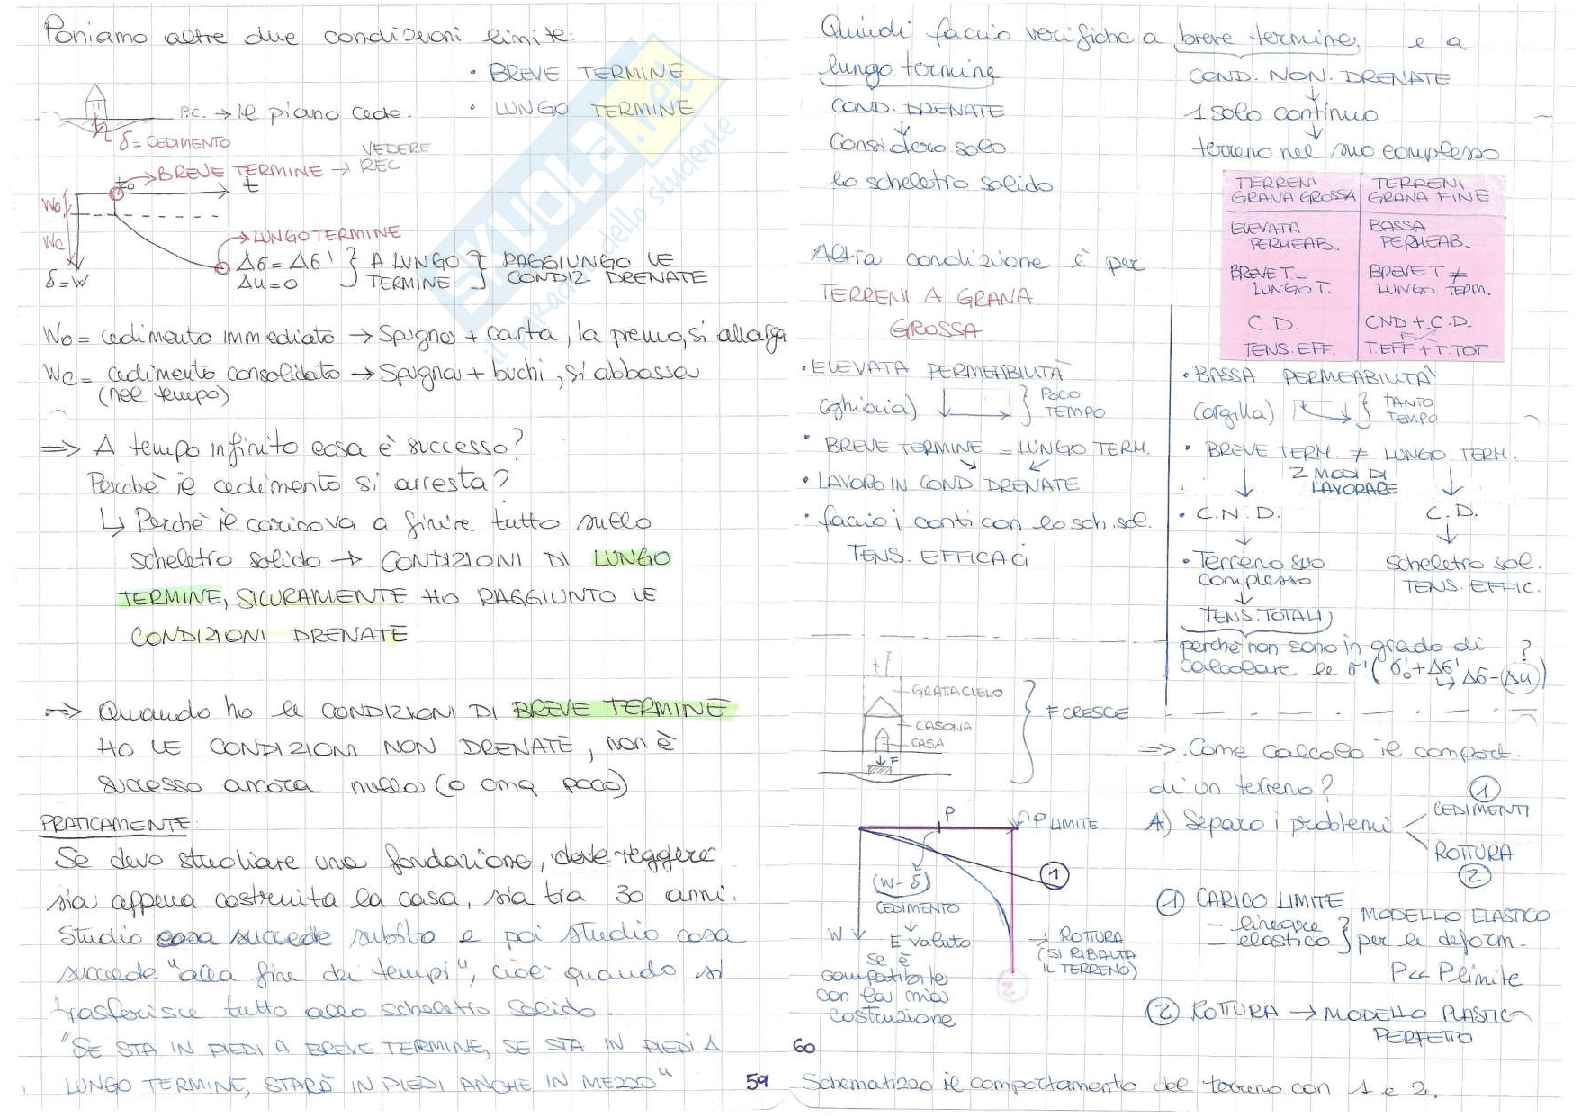 Poniamo altre due condizioni limite:
• BREVE TERMINE
• LUNGO TERMINE
P.C. → le piano cede.
δ = CEDIMENTO
t₀ → BREVE TERMINE → VEDERE REC
t
W₀
Wc
δ=W
→ LUNGO TERMINE
Δσ = Δσ' } A LUNGO } RAGGIUNGO LE
Δu = 0 } TERMINE } CONDIZ DRENATE
W₀ = cedimento immediato → Spugna + carta, la premo, si allarga
Wc = cedimento consolidato → Spugna + buchi, si abbassa
(nel tempo)
⇒ A tempo infinito cosa è successo?
Perchè il cedimento si arresta?
↳ Perchè il carico va a finire tutto sullo
scheletro solido → CONDIZIONI DI LUNGO
TERMINE, SICURAMENTE HO RAGGIUNTO LE
CONDIZIONI DRENATE
⇒ Quando ho le CONDIZIONI DI BREVE TERMINE
HO LE CONDIZIONI NON DRENATE, non è
successo ancora nulla (o cmq poco)
PRATICAMENTE:
Se devo studiare una fondazione, deve reggere
sia appena costruita la casa, sia tra 30 anni.
Studio cosa succede subito e poi studio cosa
succede "alla fine dei tempi", cioè quando si
trasferisce tutto allo scheletro solido.
"SE STA IN PIEDI A BREVE TERMINE, SE STA IN PIEDI A
LUNGO TERMINE, STARÀ IN PIEDI ANCHE IN MEZZO"
59
SCUOLA.net
il portale dello studente
Quindi faccio verifiche a breve termine, e a
lungo termine
COND. NON. DRENATE
COND. DRENATE
↓
1 solo continuo
Considero solo
↓
terreno nel suo complesso
lo scheletro solido
TERRENI GRANA GROSSA | TERRENI GRANA FINE
ELEVATA PERMEAB. | BASSA PERMEAB.
BREVE T. = LUNGO T. | BREVE T ≠ LUNGO TERM.
C.D. | CND + C.D.
TENS. EFF. | T.EFF + T.TOT
Altra condizione è per
TERRENI A GRANA
GROSSA
• ELEVATA PERMEABILITÀ
(ghiaia) } POCO TEMPO
• BREVE TERMINE = LUNGO TERM.
• LAVORO IN COND DRENATE
• faccio i conti con lo sch. sol.
TENS. EFFICACI
• BASSA PERMEABILITA'
(argilla) } TANTO TEMPO
• BREVE TERM. ≠ LUNGO TERM.
2 MODI DI LAVORARE
• C.N.D.
C.D.
• Terreno suo complesso
Scheletro sol.
TENS. EFFIC.
TENS. TOTALI
perchè non sono in grado di
calcolare le σ' (σ₀' + Δσ' ↳ Δσ - (Δu)) ?
GRATACIELO
CASONA
CASA
F
F CRESCE
P
P LIMITE
①
(W-δ)
CEDIMENTO
W
E valuto
se è
compatibile
con la mia
costruzione
2
→ ROTTURA
(SI RIBALTA
IL TERRENO)
⇒ Come calcolo il comport.
di un terreno?
A) Separo i problemi
① CEDIMENTI
ROTTURA
②
① CARICO LIMITE
– lineare
– elastico } MODELLO ELASTICO
per le deform.
P << P limite
② ROTTURA → MODELLO PLASTIC
PERFETTO
60
Schematizzo il comportamento del terreno con 1 e 2.